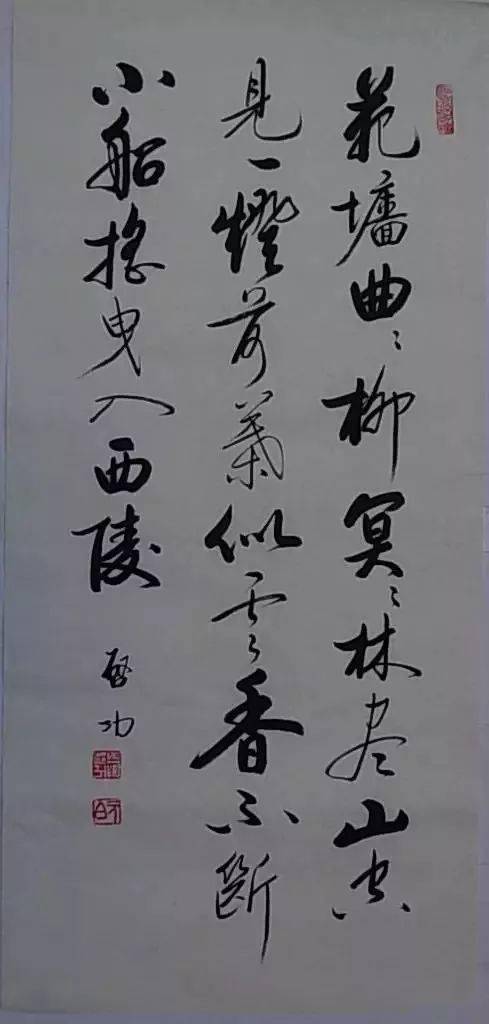 苑墻曲々柳冥々林尽山空
見一燈荷葉似雲香不斷
小船搖曳入西陵
啟功